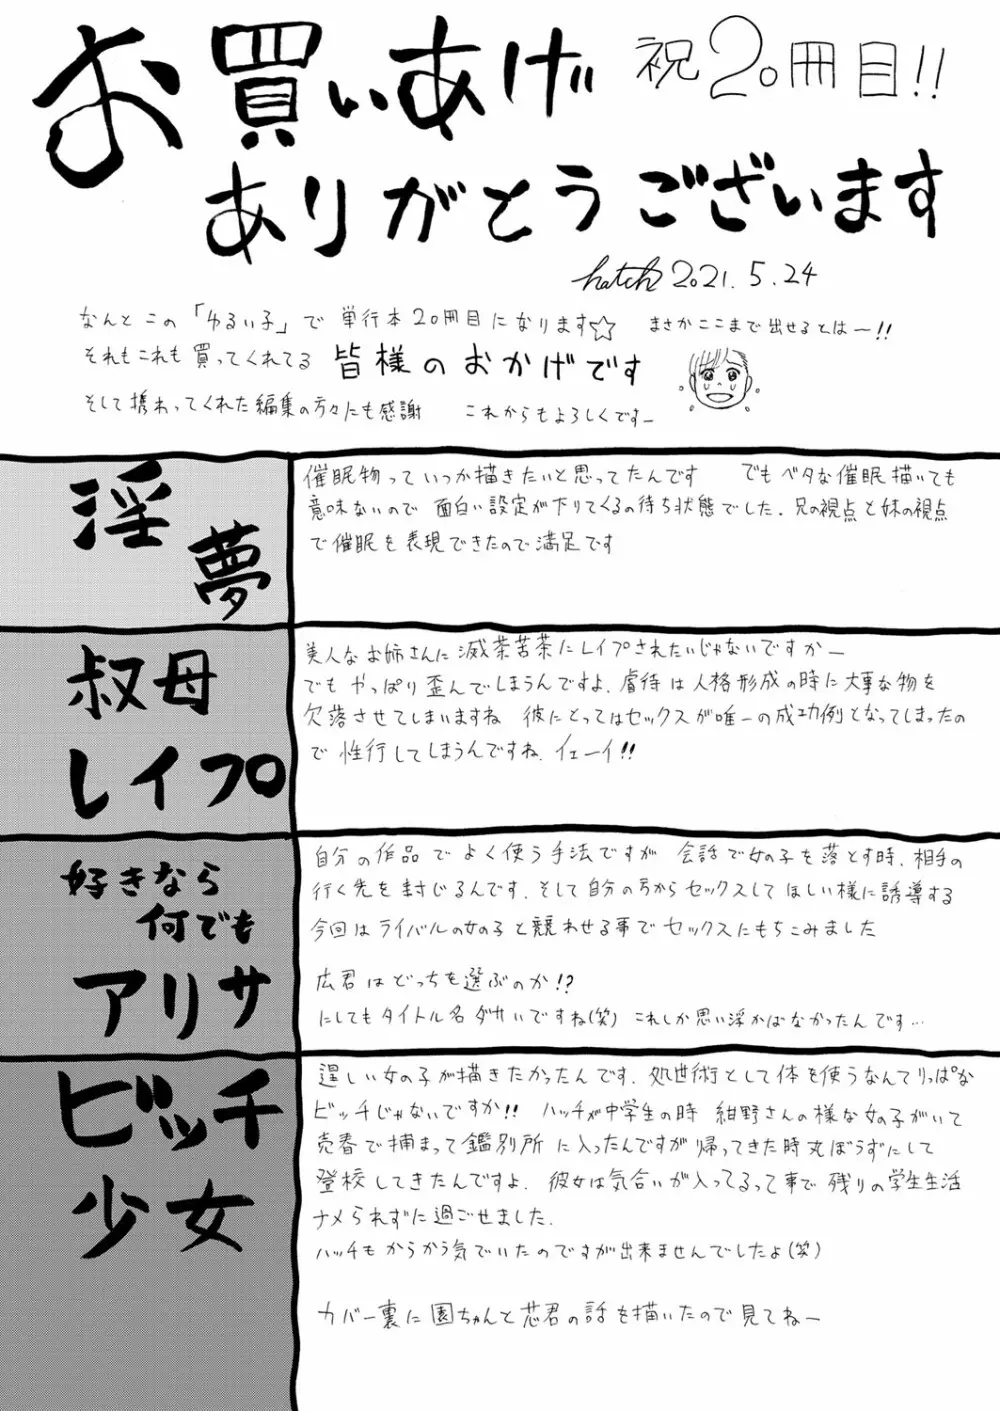 お買いあげ 祝20冊目!!
ありがとうございます
hatch 2021.5.24
なんとこの「ゆるい子」で 単行本20冊目になります☆ まさかここまで出せるとはー!!
それもこれも買ってくれてる 皆様のおかげです
そして携わってくれた編集の方々にも感謝 これからもよろしくですー
淫夢
催眠物っていつか描きたいと思ってたんです でもベタな催眠描いても
意味ないので 面白い設定が下りてくるの待ち状態でした. 兄の視点と妹の視点
で催眠を表現できたので満足です
叔母
レイプ
美人なお姉さんに滅茶苦茶にレイプされたいじゃないですかー
でもやっぱり歪んでしまうんですよ. 虐待は人格形成の時に大事な物を
欠落させてしまいますね 彼にとってはセックスが唯一の成功例となってしまったの
で性行してしまうんですね. イェーイ!!
好きなら
何でも
アリサ
自分の作品でよく使う手法ですが 会話で女の子を落とす時. 相手の
行く先を封じるんです. そして自分の方からセックスしてほしい様に誘導する
今回はライバルの女の子と競わせる事でセックスにもちこみました
広君はどっちを選ぶのか!?
にしてもタイトル名ダサいですね(笑) これしか思い浮かばなかったんです…
ビッチ
少女
逞しい女の子が描きたかったんです. 処世術として体を使うなんてりっぱな
ビッチじゃないですか!! ハッチが中学生の時 紺野さんの様な女の子がいて
売春で捕まって鑑別所に入ったんですが帰ってきた時丸ぼうずにして
登校してきたんですよ. 彼女は気合いが入ってるって事で残りの学生生活
ナメられずに過ごせました.
ハッチもからかう気でいたのですが出来ませんでしたよ(笑)
カバー裏に園ちゃんと芯君の話を描いたので見てねー